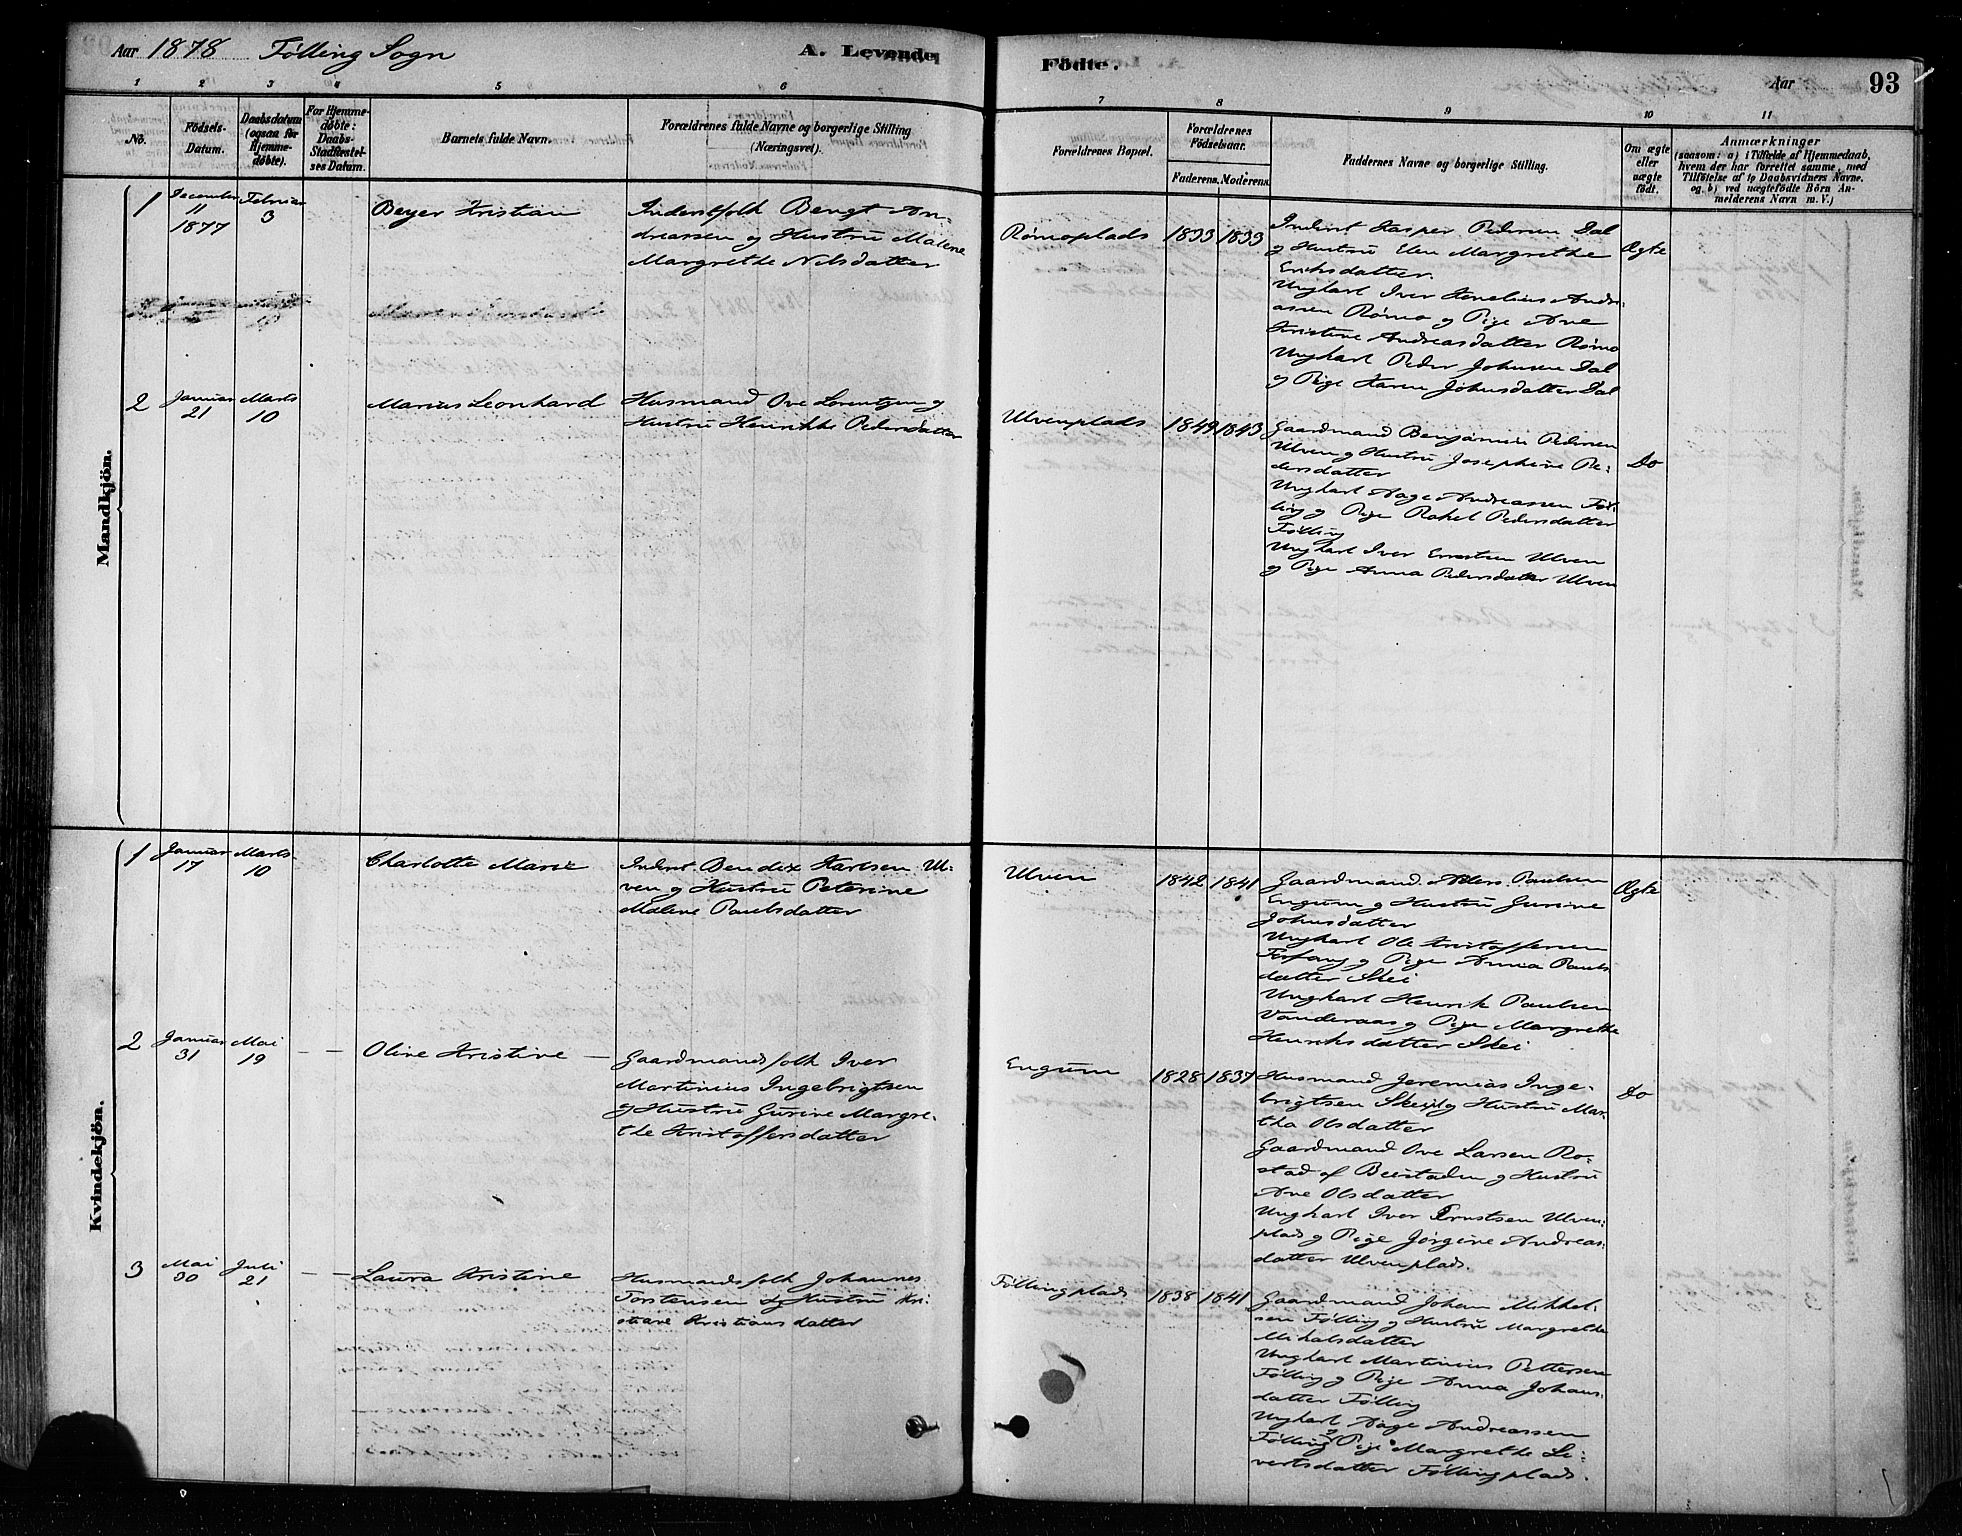 Aar 1878 Følling Sogn
A. Levende
Födte.
Aar
93
1 2 3 4 5 6
7 8 9 10 11
No.
Födsels-
Datum.
Daabsdatum
(ogsaa for
Hjemme-
døbte).
For Hjemme-
døbte:
Daabs-
Stadfæstel-
ses Datum.
Barnets fulde Navn.
Forældrenes fulde Navne og borgerlige Stilling
(Næringsvei).
Forældrenes Bopæl.
Forældrenes
Födselsaar.
Faderens. Moderens.
Faddernes Navne og borgerlige Stilling.
Om ægte
eller
uægte
født.
Anmærkninger
(saasom: a) i Tilfælde af Hjemmedaab,
hvem der har forrettet samme, med
Tilföielse af to Daabsvidners Navne.
og, b) ved uægtefödte Börn An-
melderens Navn m. V.)
Mandkjön.
1
December
11
1877
Februar
3
Beyer Kristian
Inderstfolk Bengt An-
dreassen og Hustru Malene
Margrethe Nilsdatter
Rømoplads
1833 1833
Inderst Kasper Pedersen Dal
og Hustru Elen Margrethe
Eriksdatter.
Ungharl Iver Kornelius Andre-
assen Rømo og Pige Ane
Kristine Andreasdatter Rømo
Unghart Peder Johnsen Dal
og Pige Karen Johnsdatter Dal
Ægte
2
Januar
21
Marts
10
Marius Leonhard
Husmand Ove Lorentzen og
Hustru Henrikke Pedersdatter
Ulvenplads
1849 1843
Gaardmand Benjamin Pedersen
Ulven og Hustru Josephine Pe-
dersdatter
Unghart Aage Andreassen Føl-
ling og Pige Rakel Pedersdatter
Følling
Unghart Iver Ernstsen Ulven
og Pige Anna Pedersdatter Ulven
Do
Kvindekjön.
1
Januar
17
Marts
10
Charlotte Marie
Inderst Bendix Karlsen Ul-
ven og Hustru Peterine
Malene Paulsdatter
Ulven
1842 1841
Gaardmand Peder Paulsen
Engum og Hustru Gurine
Johnsdatter
Unghart Ole Kristoffersen
Forfang og Pige Anna Pauls
datter Skei
Unghart Henrik Paulsen
Vanderaas og Pige Margrethe
Henriksdatter Skei
Ægte
2
Januar
31
Mai
19
Olive Kristine
Gaardmandsfolk Iver
Martinius Ingebrigtsen
og Hustru Gurine Margre-
the Kristoffersdatter
Engum
1828 1837
Husmand Jeremias Inge-
brigtsen Skeipl og Hustru Mar-
tha Olsdatter
Gaardmand Ove Larsen Ro-
stad af Beitstaden og Hustru
Ane Olsdatter
Unghart Iver Ernstsen Ulven-
plads og Pige Jørgine Andreas-
datter Ulvenplads.
Do
3
Mai
30
Juli
21
Laura Kristine
Husmandsfolk Johannes
Torstensen og Hustru Kri-
stiane Kristiansdatter
Føllingplads
1838 1841
Gaardmand Johan Mikkel-
sen Følling og Hustru Margrethe
Mikalsdatter
Unghart Martinius Pettersen
Følling og Pige Anna Johans-
datter Følling
Unghart Aage Andreassen
Følling og Pige Margrethe Si-
vertsdatter Føllingplads.